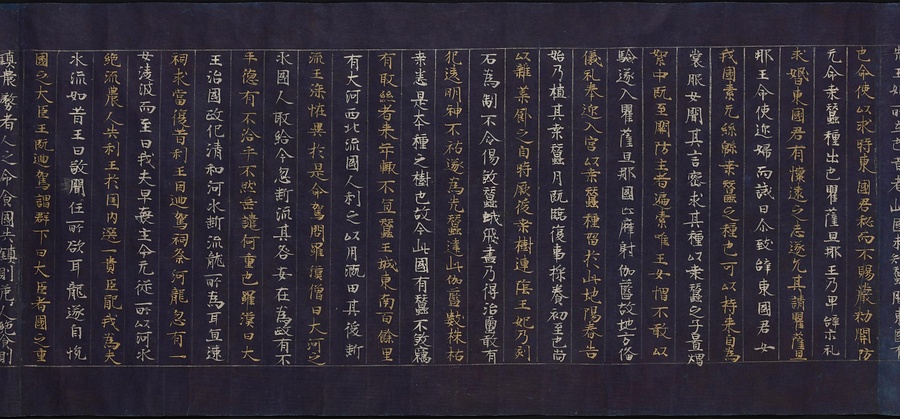 也命使以求時東國君秘而不賜嚴勅關防
无令桒蠶種出也瞿薩旦那王乃卑辝下礼
求婚東國國君有懷遠之志遂允其請瞿薩旦
那王命使迎婦而誡曰尒致辝東國君女
我國素无絲緜桒蠶之種也可以持来自為
裳服女聞其言密求其種以桒蠶之子置帽
絮中既至關防主者遍索唯王女帽不敢以
驗遂入瞿薩旦那國止麻射伽藍故地方備
儀礼奉迎入宮以桒蠶種留於此地陽春告
始乃植其桒蠶月既臨復事採養初至也尚
以雜葉飼之自時厥後桒樹連蔭王妃乃刻
石為制不令傷煞蠶蛾飛盡乃得治繭敢有
犯違明神不祐遂為先蠶建此伽藍數株枯
桒云是本種之樹也故今此國有蠶不煞竊
有取絲者来年輒不宜蠶王城東南百餘里
有大河西北流國人利之以用溉田其後斷
流王深恠異於是命駕問羅漢僧曰大河之
水國人取給今忽斷流其咎安在為政有不
平德有不洽乎不然垂譴何重也羅漢曰大
王治國政化清和河水斷流龍所為耳宜速
祠求當復昔利王因迴駕祠祭河龍忽有一
女淩波而至曰我夫早喪主命无從所以河水
絕流農人失利王於國内選一貴臣配我為夫
水流如昔王曰敬聞任所欲耳龍遂目悅
國之大臣王既迴駕謂群下曰大臣者國之重
鎮農務者人之命食國失鎮則危人絕食則